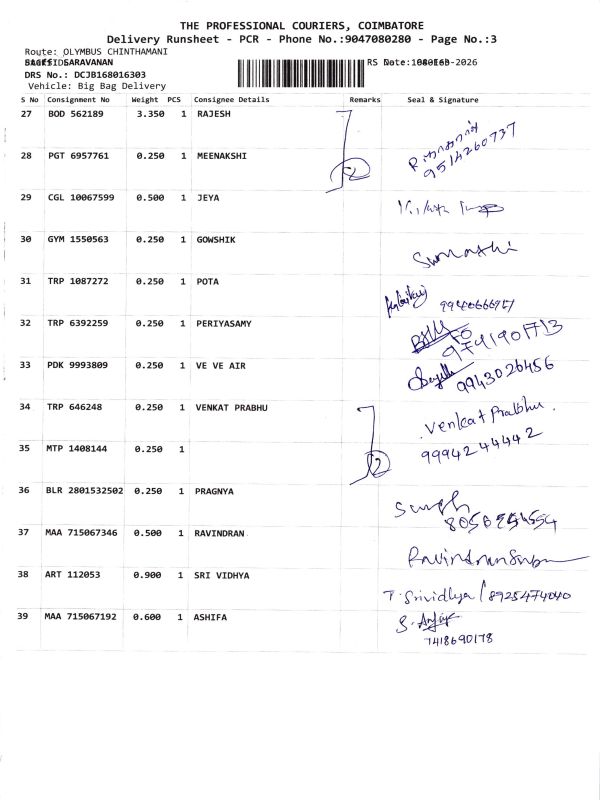 THE PROFESSIONAL COURIERS, COIMBATORE
Delivery Runsheet - PCR - Phone No.:9047080280 - Page No.:3
Route: OLYMBUS CHINTHAMANI
SARAVANAN
RS Date: -2026
DRS No.: DCJB168016303
Vehicle: Big Bag Delivery
S No Consignment No Weight PCS Consignee Details Remarks Seal & Signature
27 BOD 562189 3.350 1 RAJESH
9514260737
28 PGT 6957761 0.250 1 MEENAKSHI 2
29 CGL 10067599 0.500 1 JEYA
30 GYM 1550563 0.250 1 GOWSHIK
Sumathi
31 TRP 1087272 0.250 1 POTA
32 TRP 6392259 0.250 1 PERIYASAMY
9741901713
33 PDK 9993809 0.250 1 VE VE AIR
9943026456
34 TRP 646248 0.250 1 VENKAT PRABHU
Venkat Prabhu.
9994244442
35 MTP 1408144 0.250 1 2
36 BLR 2801532502 0.250 1 PRAGNYA
37 MAA 715067346 0.500 1 RAVINDRAN
38 ART 112053 0.900 1 SRI VIDHYA
T. Srividhya / 8925474040
39 MAA 715067192 0.600 1 ASHIFA
7418690178